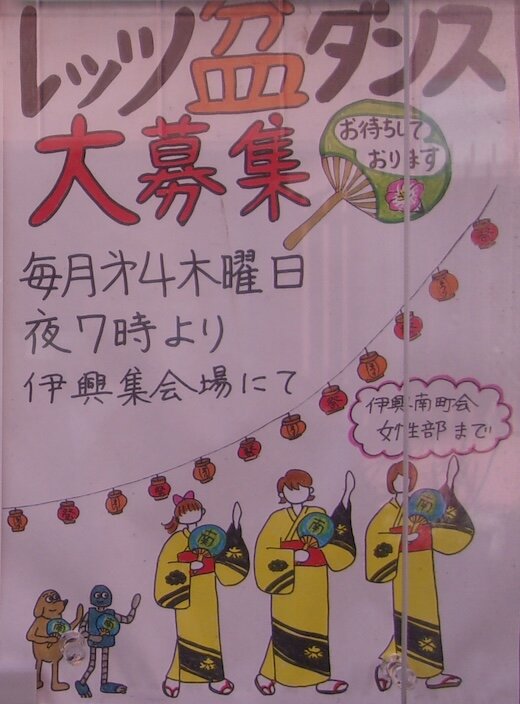 レッツ盆ダンス
大募集
お待ちして
おります
毎月㐧4木曜日
夜7時より
伊興集会場にて
伊興南町会
女性部まで
南
南
南
南
南